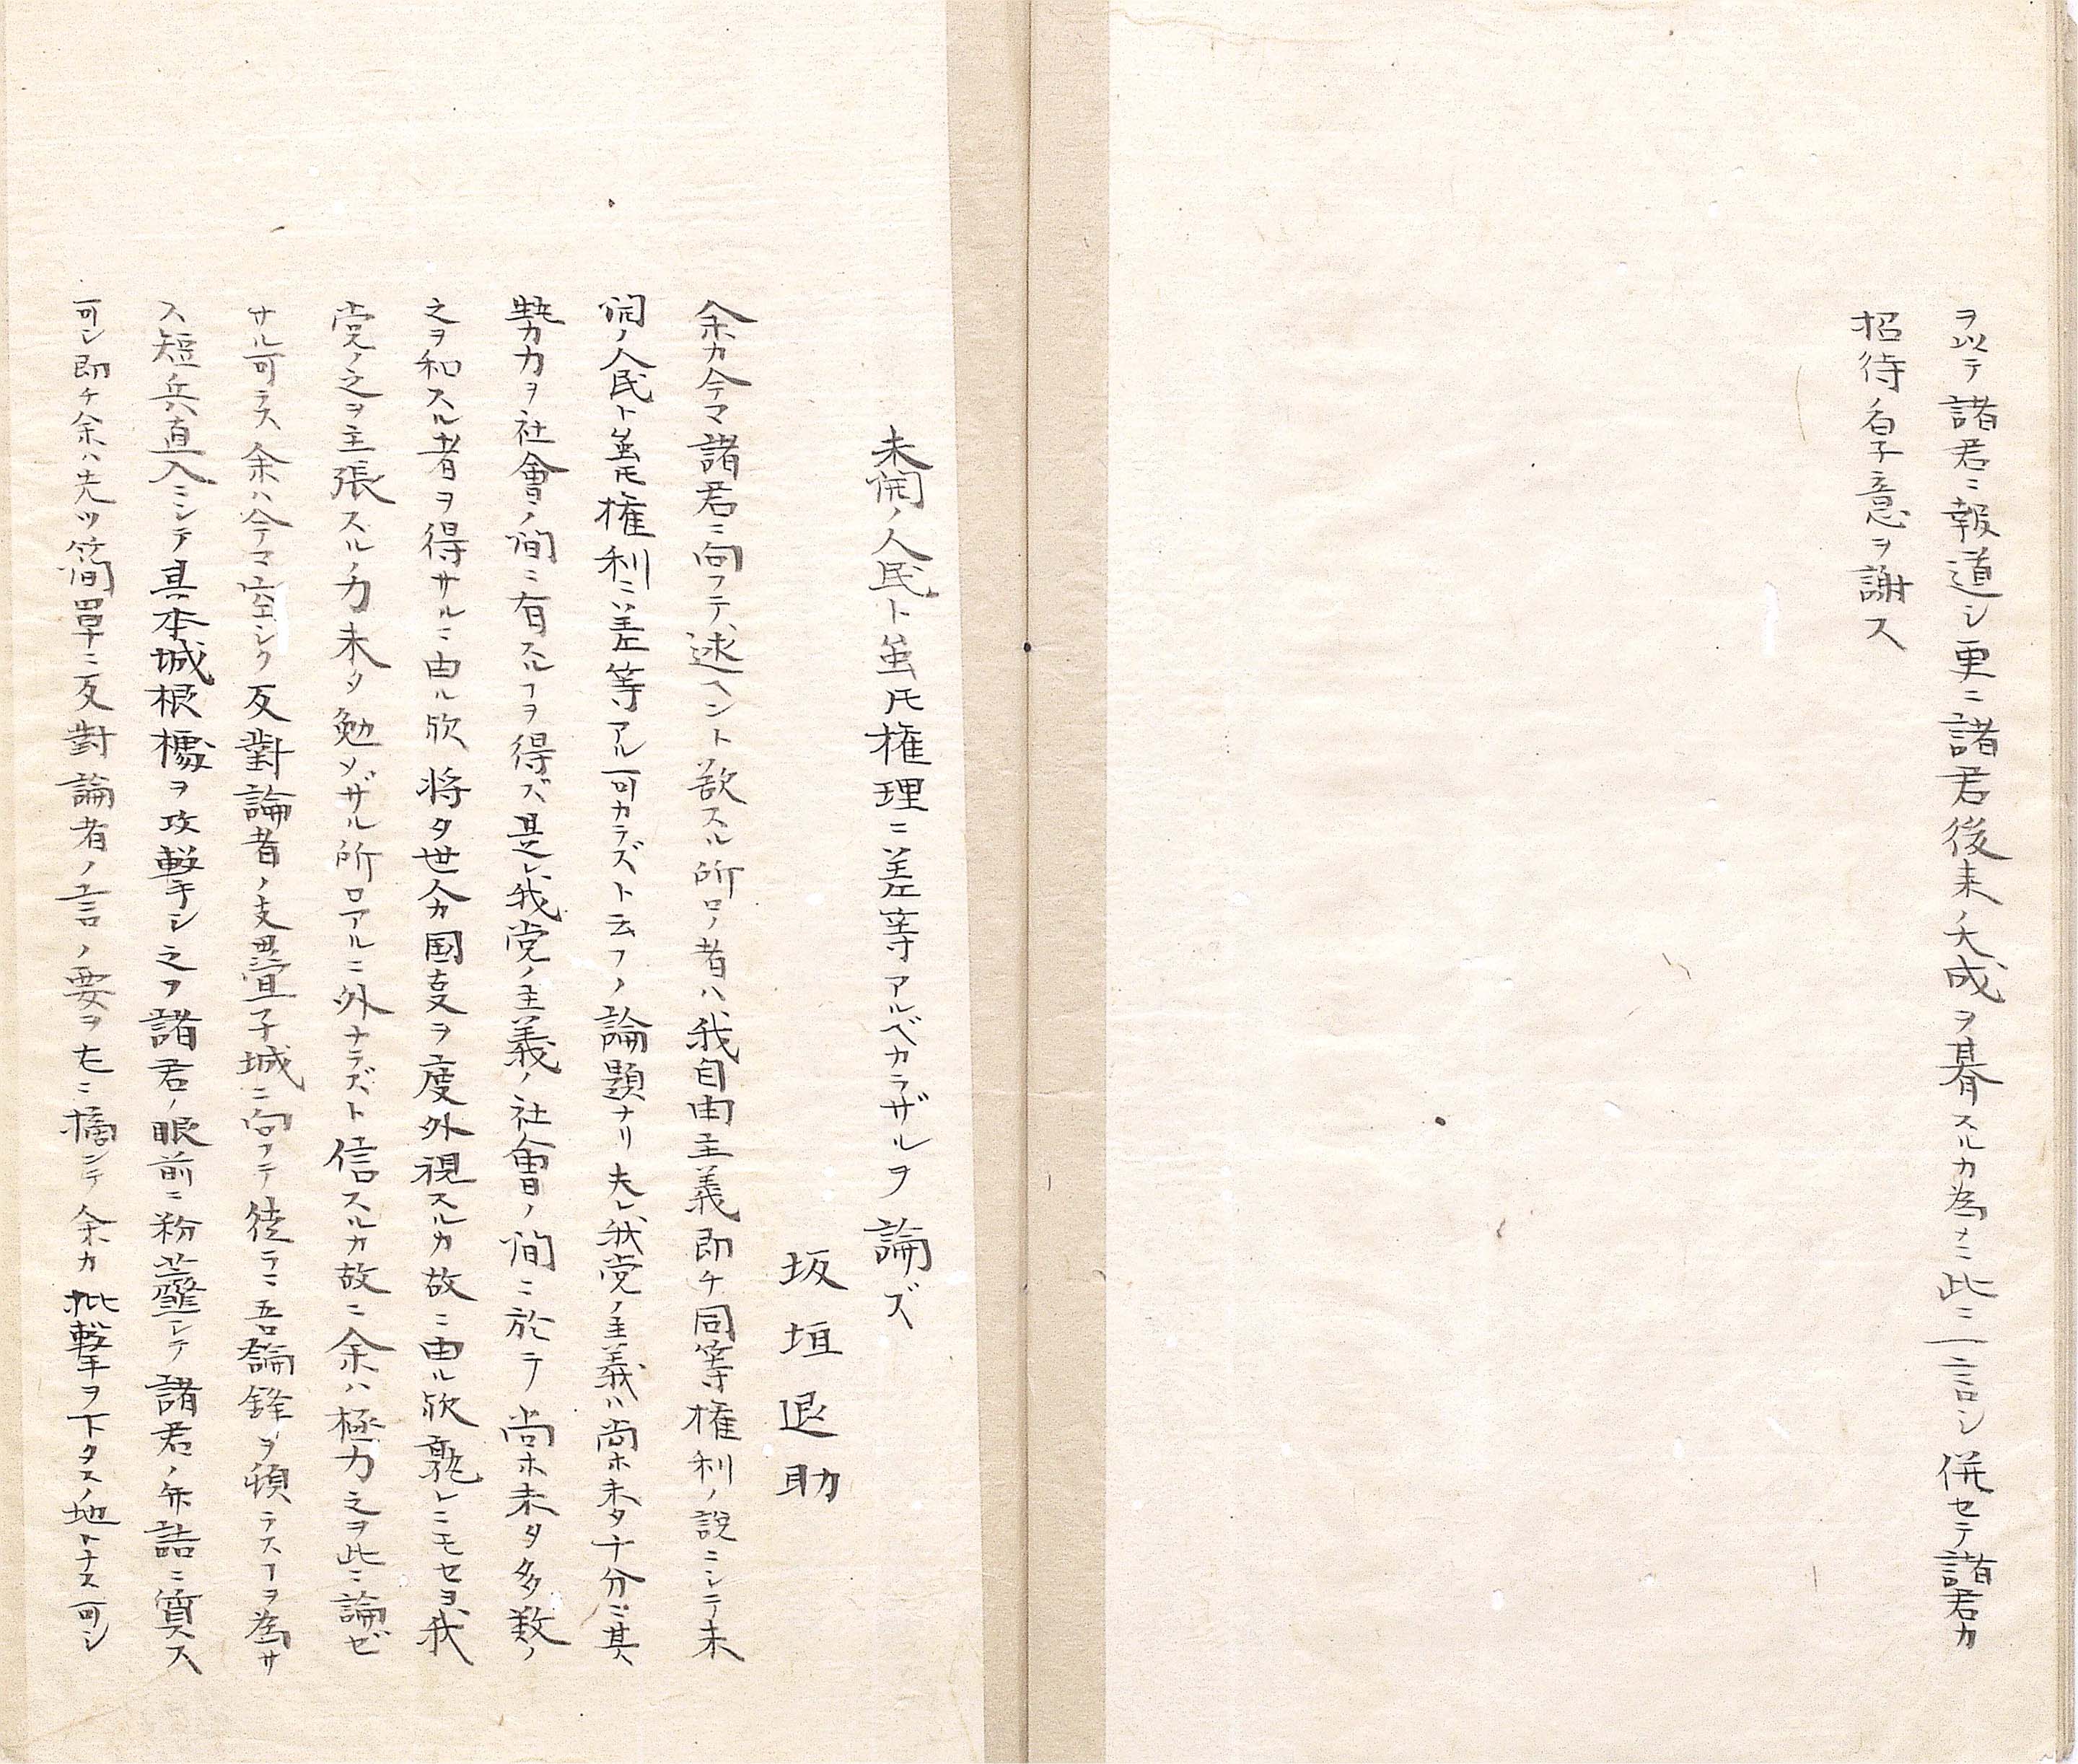 ヲ以テ諸君ニ報道シ更ニ諸君後来ノ大成ヲ暮スルカ為メニ此ニ一言シ併セテ諸君カ
招待ノ厚意ヲ謝ス
未開ノ人民ト虽𪜈権理ニ差等アルベカラザルヲ論ズ
坂垣退助
余カ今マ諸君ニ向フテ述ヘント欲スル所ロノ者ハ我自由主義即チ同等権利ノ説ニシテ未
開ノ人民ト虽𪜈権利ニ差等アル可カラズト云フノ論題ナリ夫レ我党ノ主義ハ尚ホ未タ十分ニ其
勢力ヲ社會ノ間ニ有スルヿヲ得ズ是レ我党ノ主義ノ社會ノ間ニ於テ尚ホ未タ多数ノ
之ヲ和スル者ヲ得サルニ由ル欤将タ世人カ国㕝ヲ度外視スルカ故ニ由ル欤孰レニモセヨ我
党ノ之ヲ主張スルノ力未タ勉メザル所ロアルニ外ナラズト信スルカ故ニ余ハ極力之ヲ此ニ論ゼ
サル可ラス余ハ今マ空シク反對論者ノ支壘子城ニ向フテ徒ラニ吾論鋒ヲ頓ラスヿヲ為サ
ス短兵直入ニシテ其本城根櫨ヲ攻撃シ之ヲ諸君ノ眼前ニ粉韲シテ諸君ノ弁詰ニ質ス
可シ即チ余ハ先ツ簡単ニ反對論者ノ言ノ要ヲ左ニ摘シテ余カ批撃ヲ下タスノ地トナス可シ